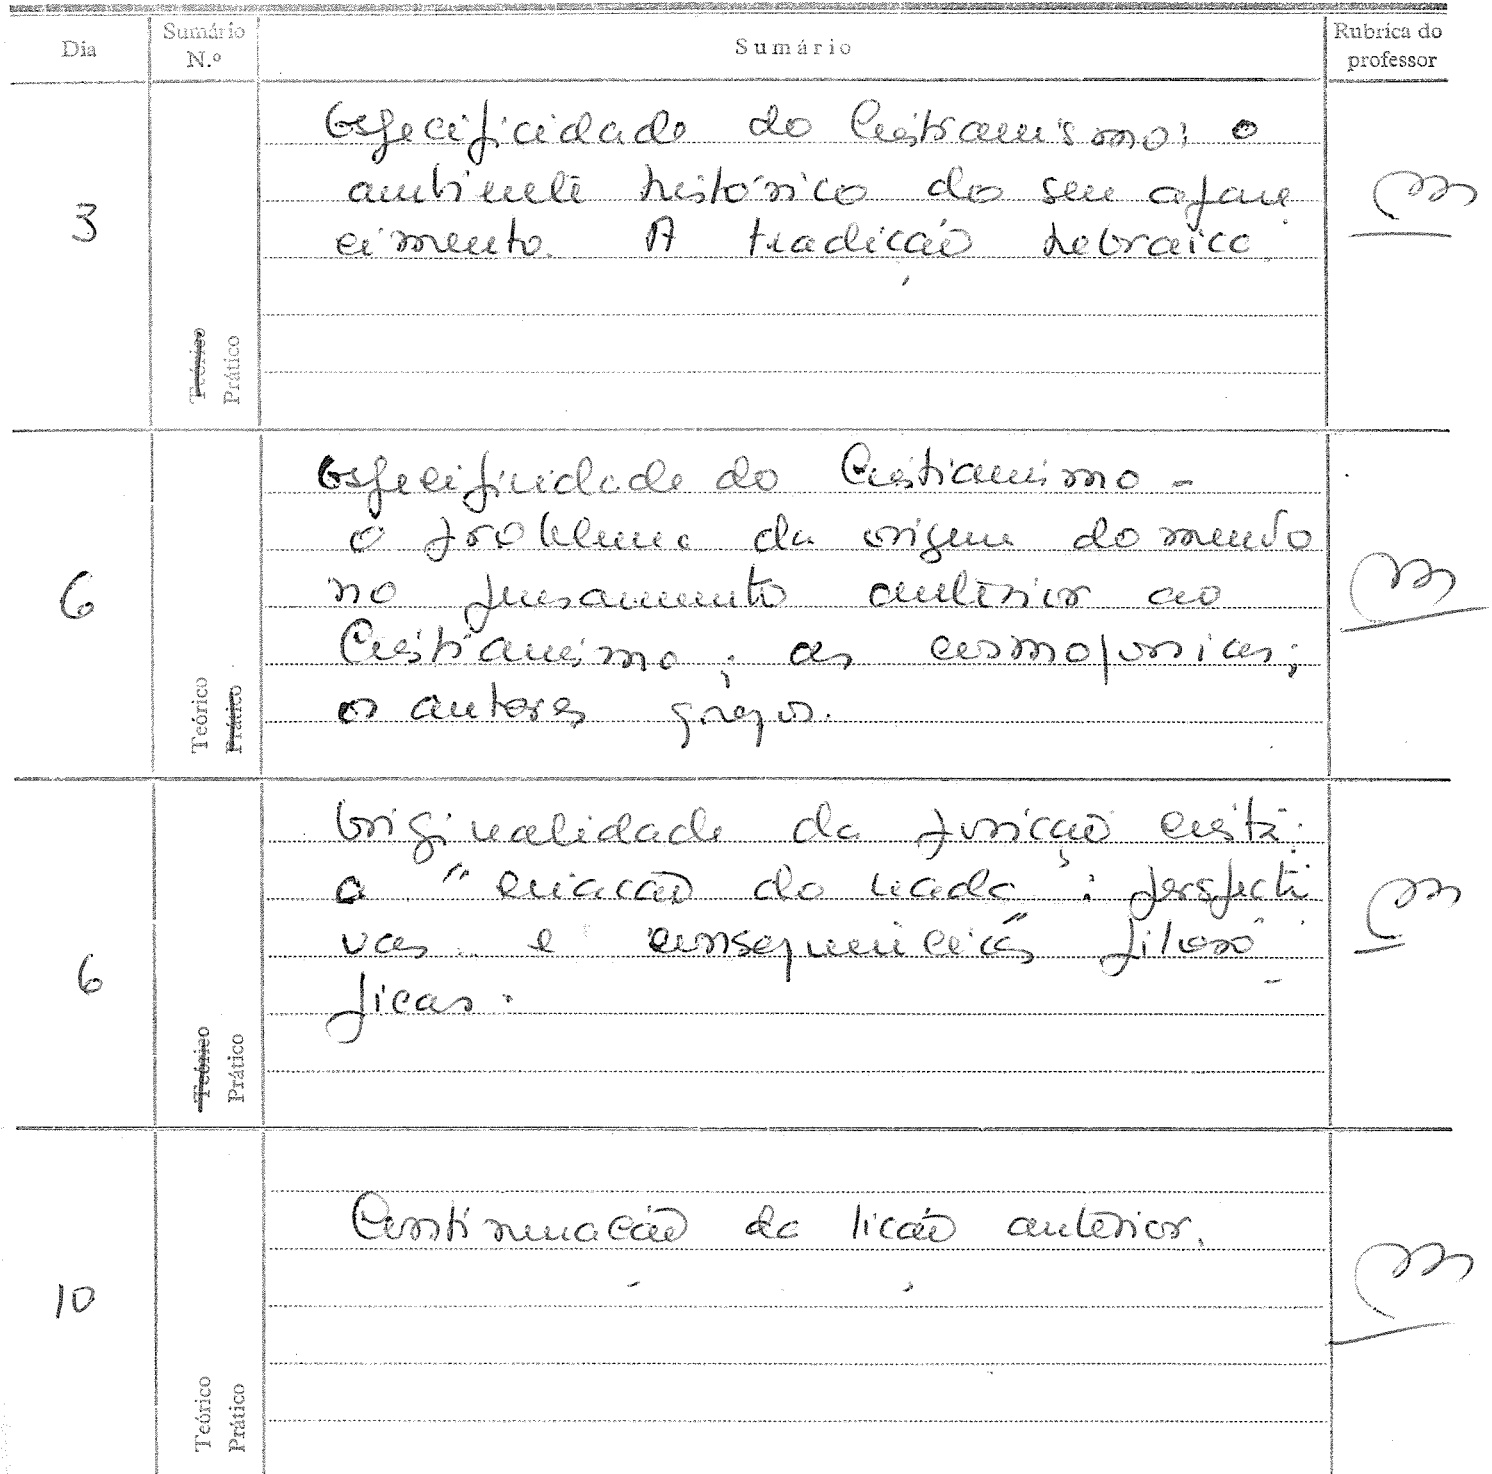 Dia
Sumário
N.º
Sumário
Rubrica do
professor
3
Teórico
Prático
Especificidade do Cristianismo: o
ambiente histórico do seu apare
cimento. A tradição hebraica.
6
Teórico
Prático
Especificidade do Cristianismo -
o problema da origem do mundo
no pensamento anterior ao
Cristianismo; as cosmogonias;
os autores gregos.
6
Teórico
Prático
Originalidade da posição cristã:
a "criação do nada": perspecti
vas e consequências filosó
ficas.
10
Teórico
Prático
Continuação da lição anterior.